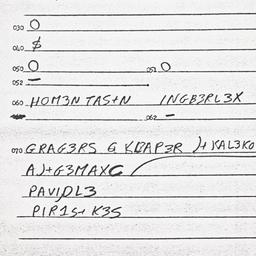 030 O
040 $
050 O
052 — 051 O
060 HOM3N TAS+N INGB3RL3X
062 —
070 GRAG3RS G KDAP3R )+ KAL3KO
A)+G3MAXC
PAVIDL3
PIR1S+ K3S